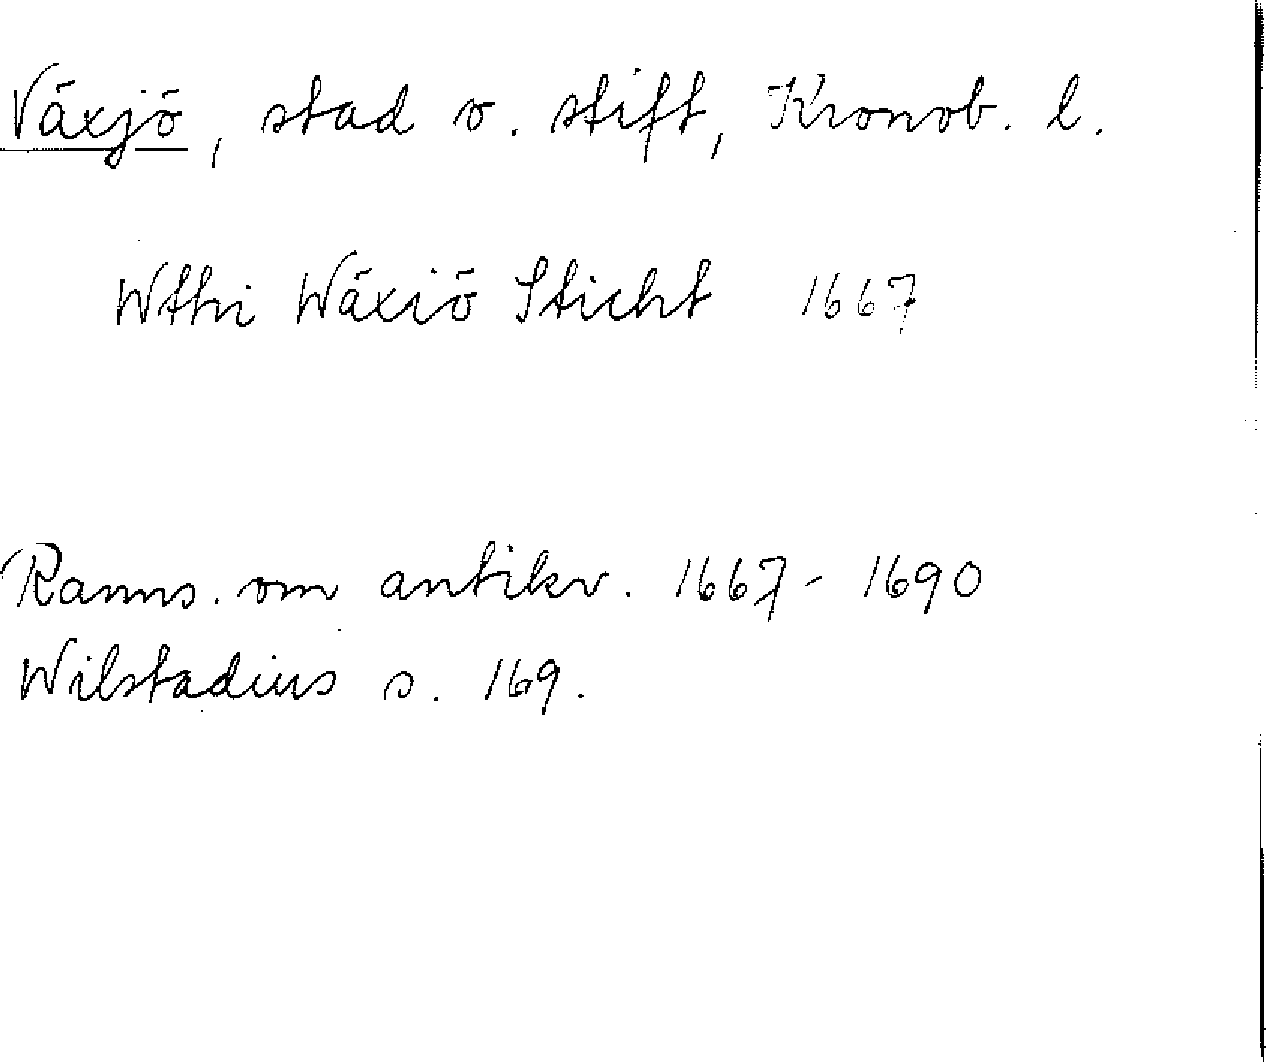 Växjö, stad o. stift, Kronob. l.
Wthi Wäxiö Sticht 1667
Ranns. om antikv. 1667- 1690
Wilstadius s. 169.